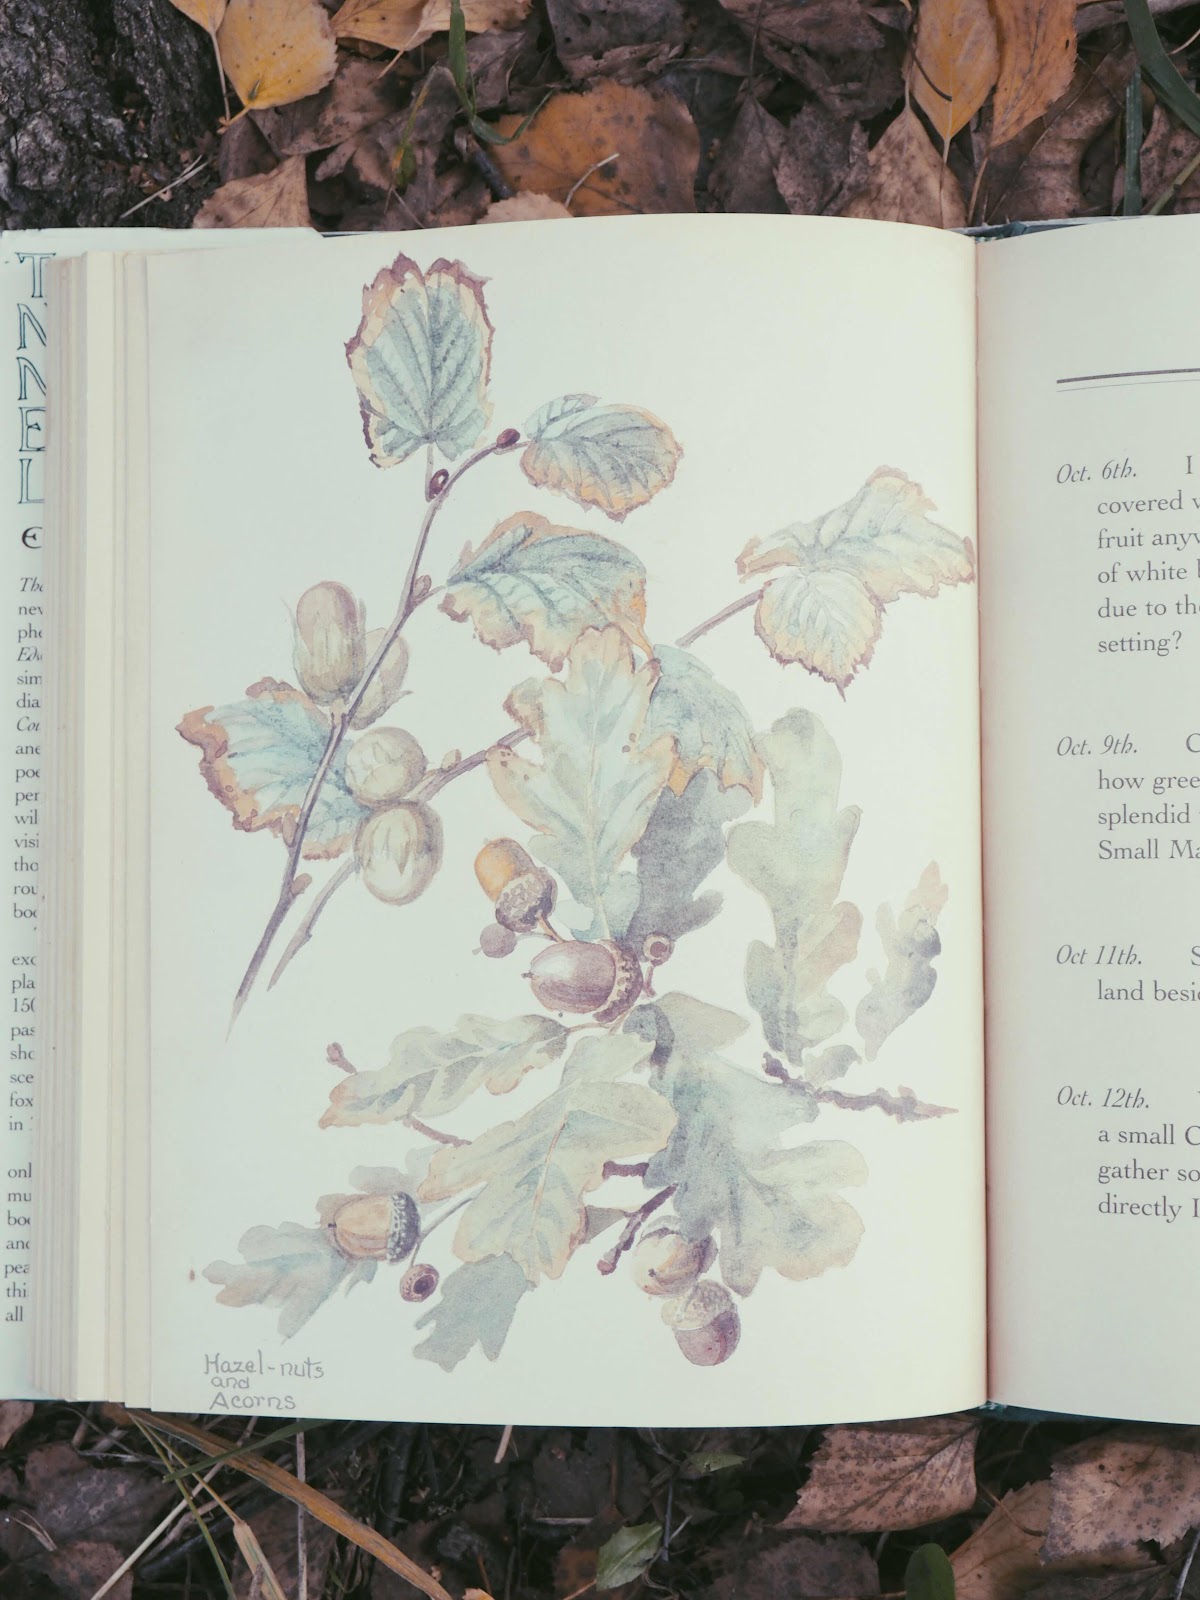 T
N
N
E
L
The
new
Edw
sim
dia
Cou
ane
poe
per
wil
visi
tho
rou
boo
exc
pla
150
pas
sho
sce
fox
in
onl
mu
boo
and
pea
thi
all
Hazel-nuts
and
Acorns
Oct. 6th. I
covered
fruit
of white
due to the
setting?
Oct. 9th.
how gree
splendid
Small Ma
Oct 11th. S
land besi
Oct. 12th.
a small C
gather so
directly I